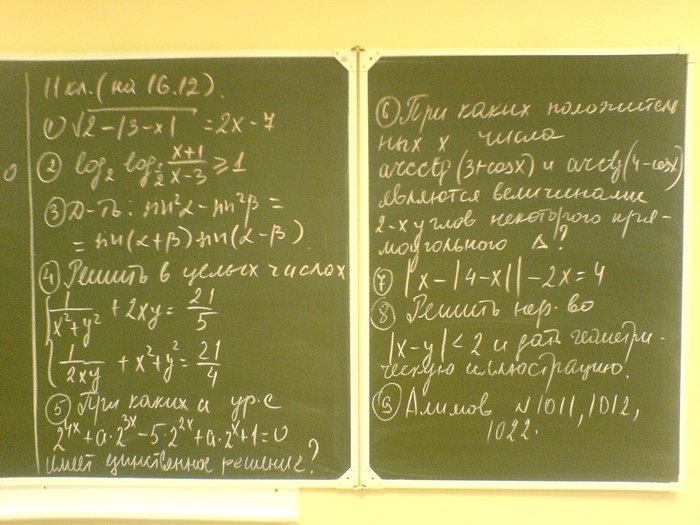 11 кл. (на 16.12).
① √(2-|3-x|) = 2x-7
② log₂ log_{1/2} (x+1)/(x-3) ≥ 1
③ Д-ть: sin²α - sin²β =
= sin(α+β) sin(α-β).
④ Решить в целых числах
{ 1/(x²+y²) + 2xy = 21/5
{ 1/(2xy) + x²+y² = 21/4
⑤ При каких a ур-е
2^{4x} + a·2^{3x} - 5·2^{2x} + a·2^x + 1 = 0
имеет единственное решение?
⑥ При каких положитель
ных x числа
arcctg(3+cosx) и arcctg(4-cosx)
являются величинами
2-х углов некоторого пря-
моугольного Δ?
⑦ |x-|4-x||-2x=4
⑧ Решить нер-во
|x-y|<2 и дать геометри-
ческую иллюстрацию.
⑨ Алимов №1011, 1012,
1022.